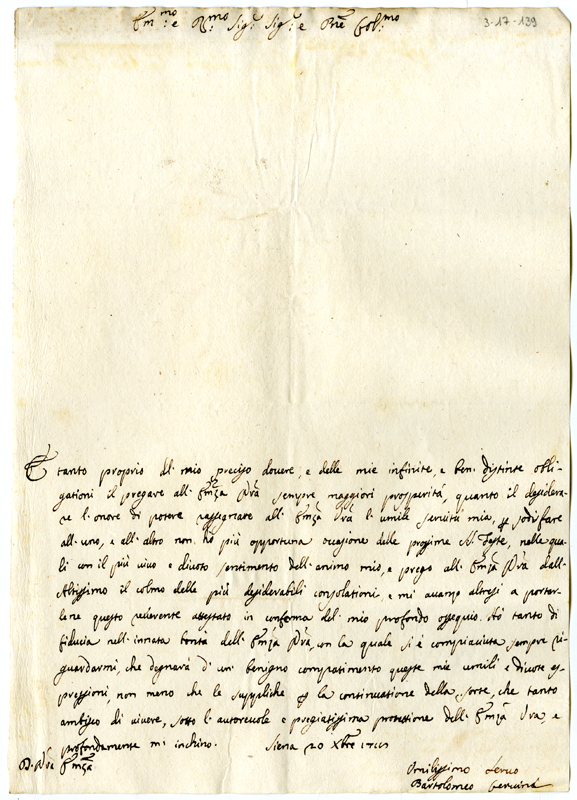 3-17-139
Em:mo e R:mo Sig:r Sig:r e Pne Col:mo
È tanto proprio del mio preciso douere, e delle mie infinite, e ben distinte obli-
gationi il pregare all' Emza Vra sempre maggiori prosperità, quanto il desidera-
re l'onore di potere rassegnare all' Emza Vra l'umile seruitù mia, sodisfare
all'uno, e all'altro non hò più opportuna occasione delle prossime Ste Feste, nelle qua-
li con il più viuo e diuoto sentimento dell'animo mio, prego all' Emza Vra dall'
Altissimo il colmo delle più desiderabili consolationi, e mi auanzo altresi a porter-
lene questo reuerente attestato in conferma del mio profondo ossequio. Hò tanto di
fiducia nell'innata bontà dell' Emza Vra, con la quale si è compiaciuta sempre ri-
guardarmi, che degnarà di un benigno compatimento queste mie umili e diuote es-
pressioni, non meno che le suppliche p la continuatione della sorte, che tanto
ambisco di viuere, sotto l'autoreuole e pregiatissima protettione dell' Emza Vra e
profondamente mi inchino. Siena 20 Xbre
D. Vra Emza
Vmilissimo Seruo
Bartolomeo